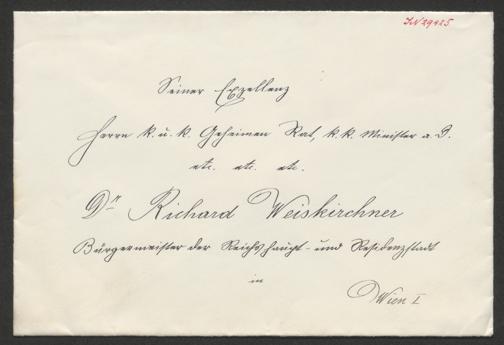 IN 29425
Seiner Exzellenz
Herrn k. u. k. Geheimen Rat, k. k. Minister a. D.
etc. etc. etc.
Dr. Richard Weiskirchner
Bürgermeister der Reichshaupt- und Residenzstadt
in
Wien I